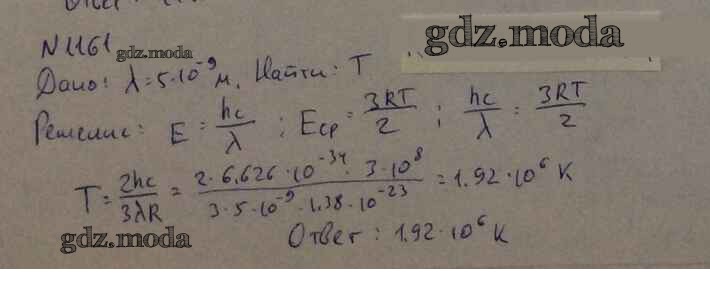 Ответ:
N 1161
gdz.moda
gdz.moda
Дано: λ = 5·10⁻⁹ м. Найти: T
Решение: E = hc/λ ; Eср = 3RT/2 ; hc/λ = 3RT/2
T = 2hc/3λR = 2·6,626·10⁻³⁴·3·10⁸/3·5·10⁻⁹·1,38·10⁻²³ = 1.92·10⁶ K
gdz.moda
Ответ: 1,92·10⁶ K